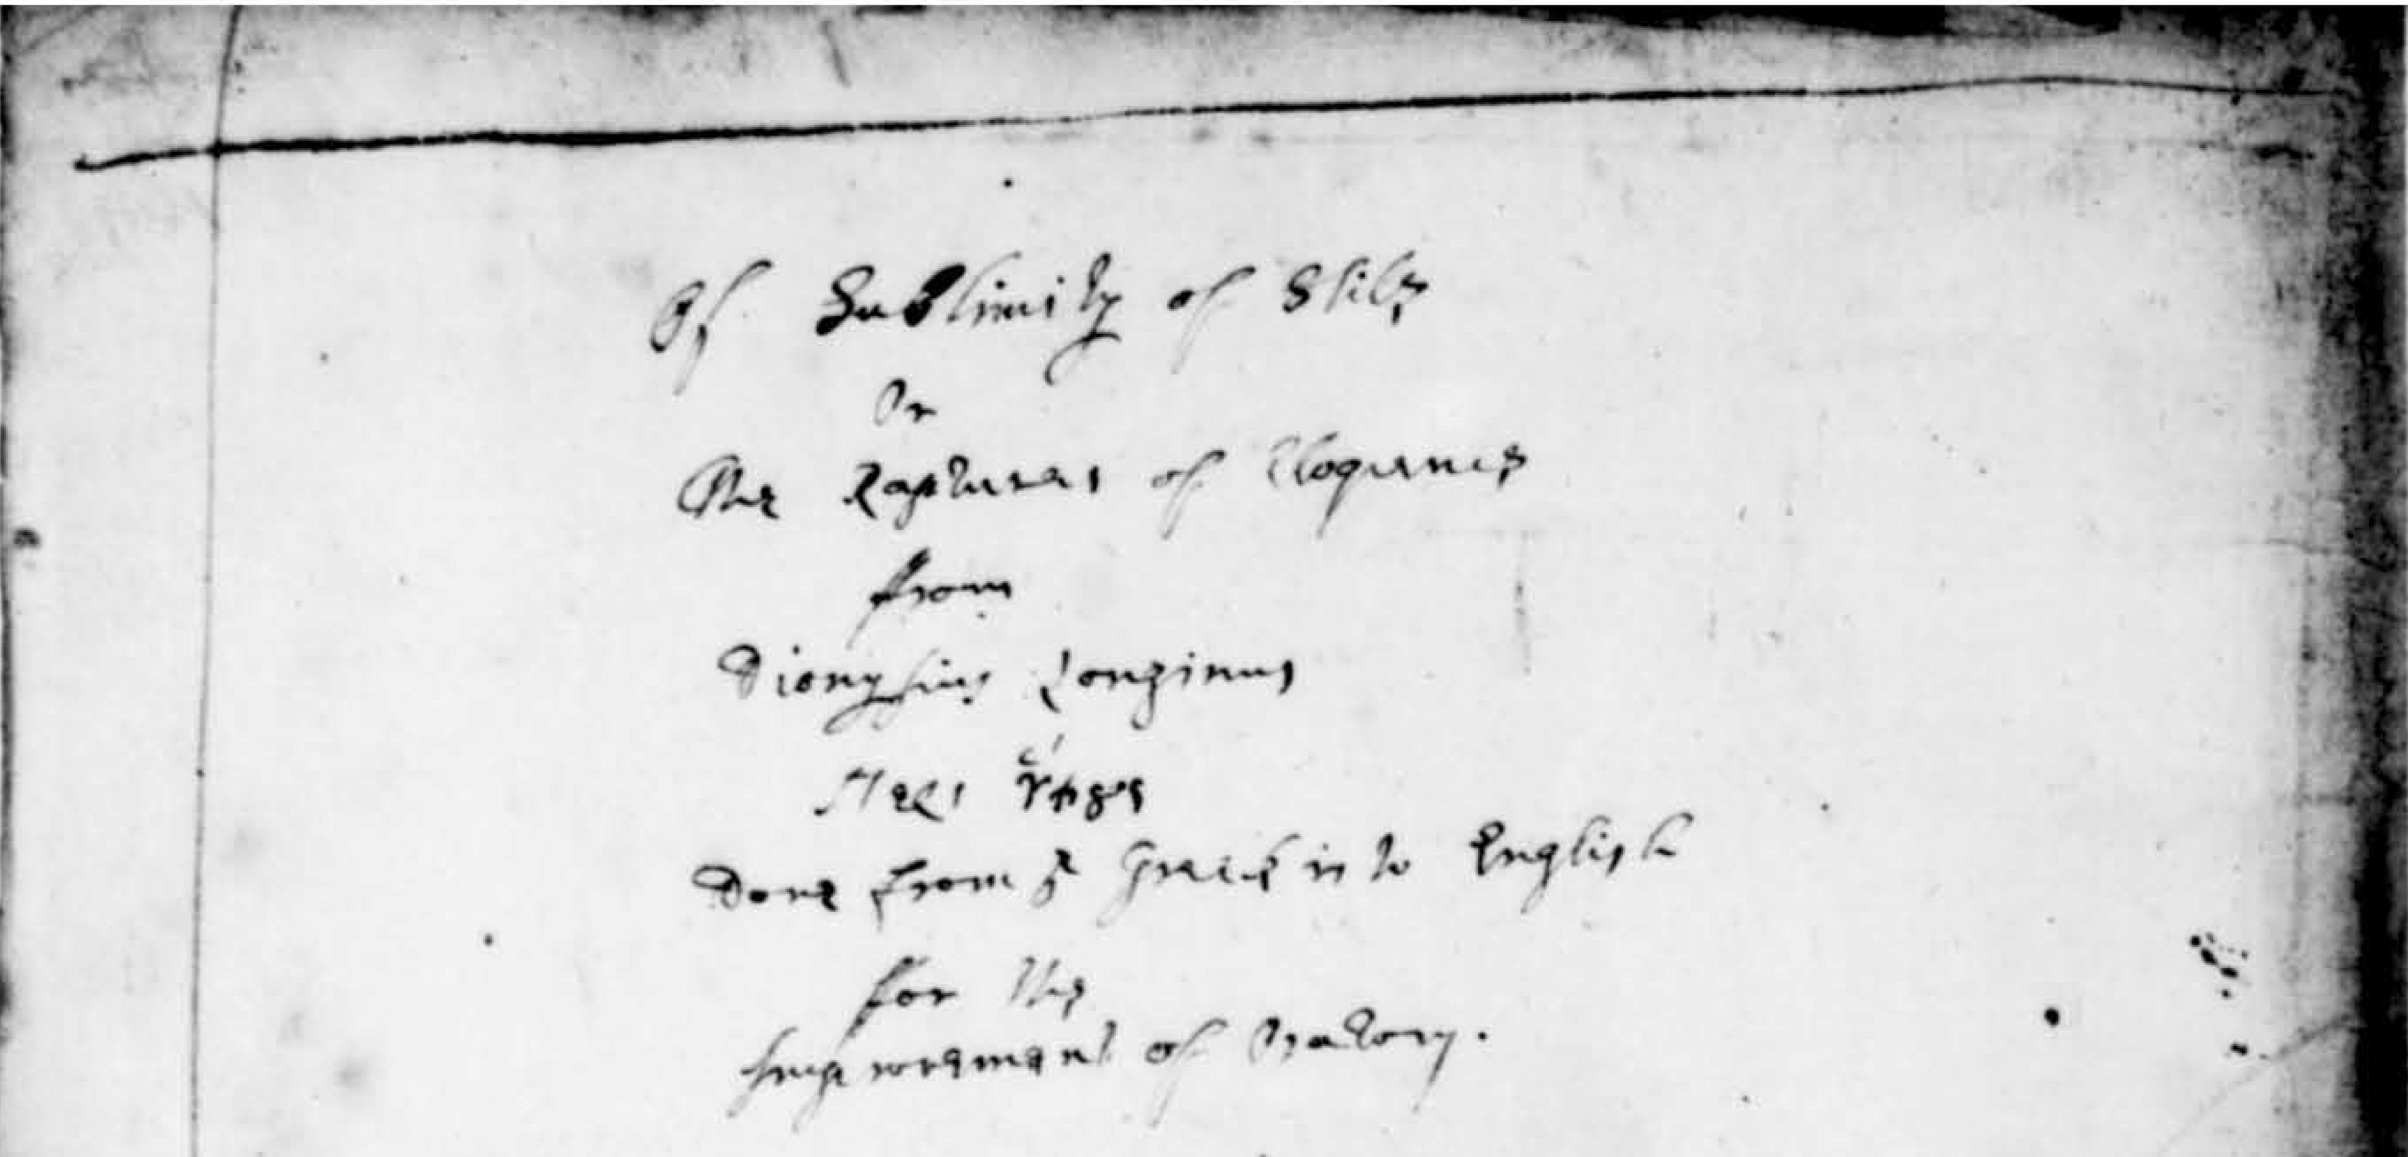 Of Sublimity of Stile
Or
The Raptures of Eloquence
from
Dionysius Longinus
Περι Ὕψους
Done from ye Greek into English
for the
Improvement of Oratory.